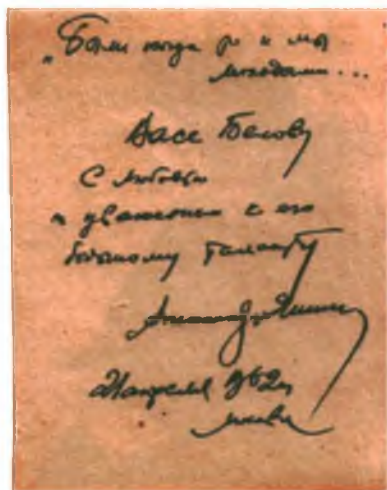 „Были когда-то и мы
молодыми...
Васе Белову
С любовью
и уважением к его
большому таланту
Александр Яшин
апреля 1962 г
Москва